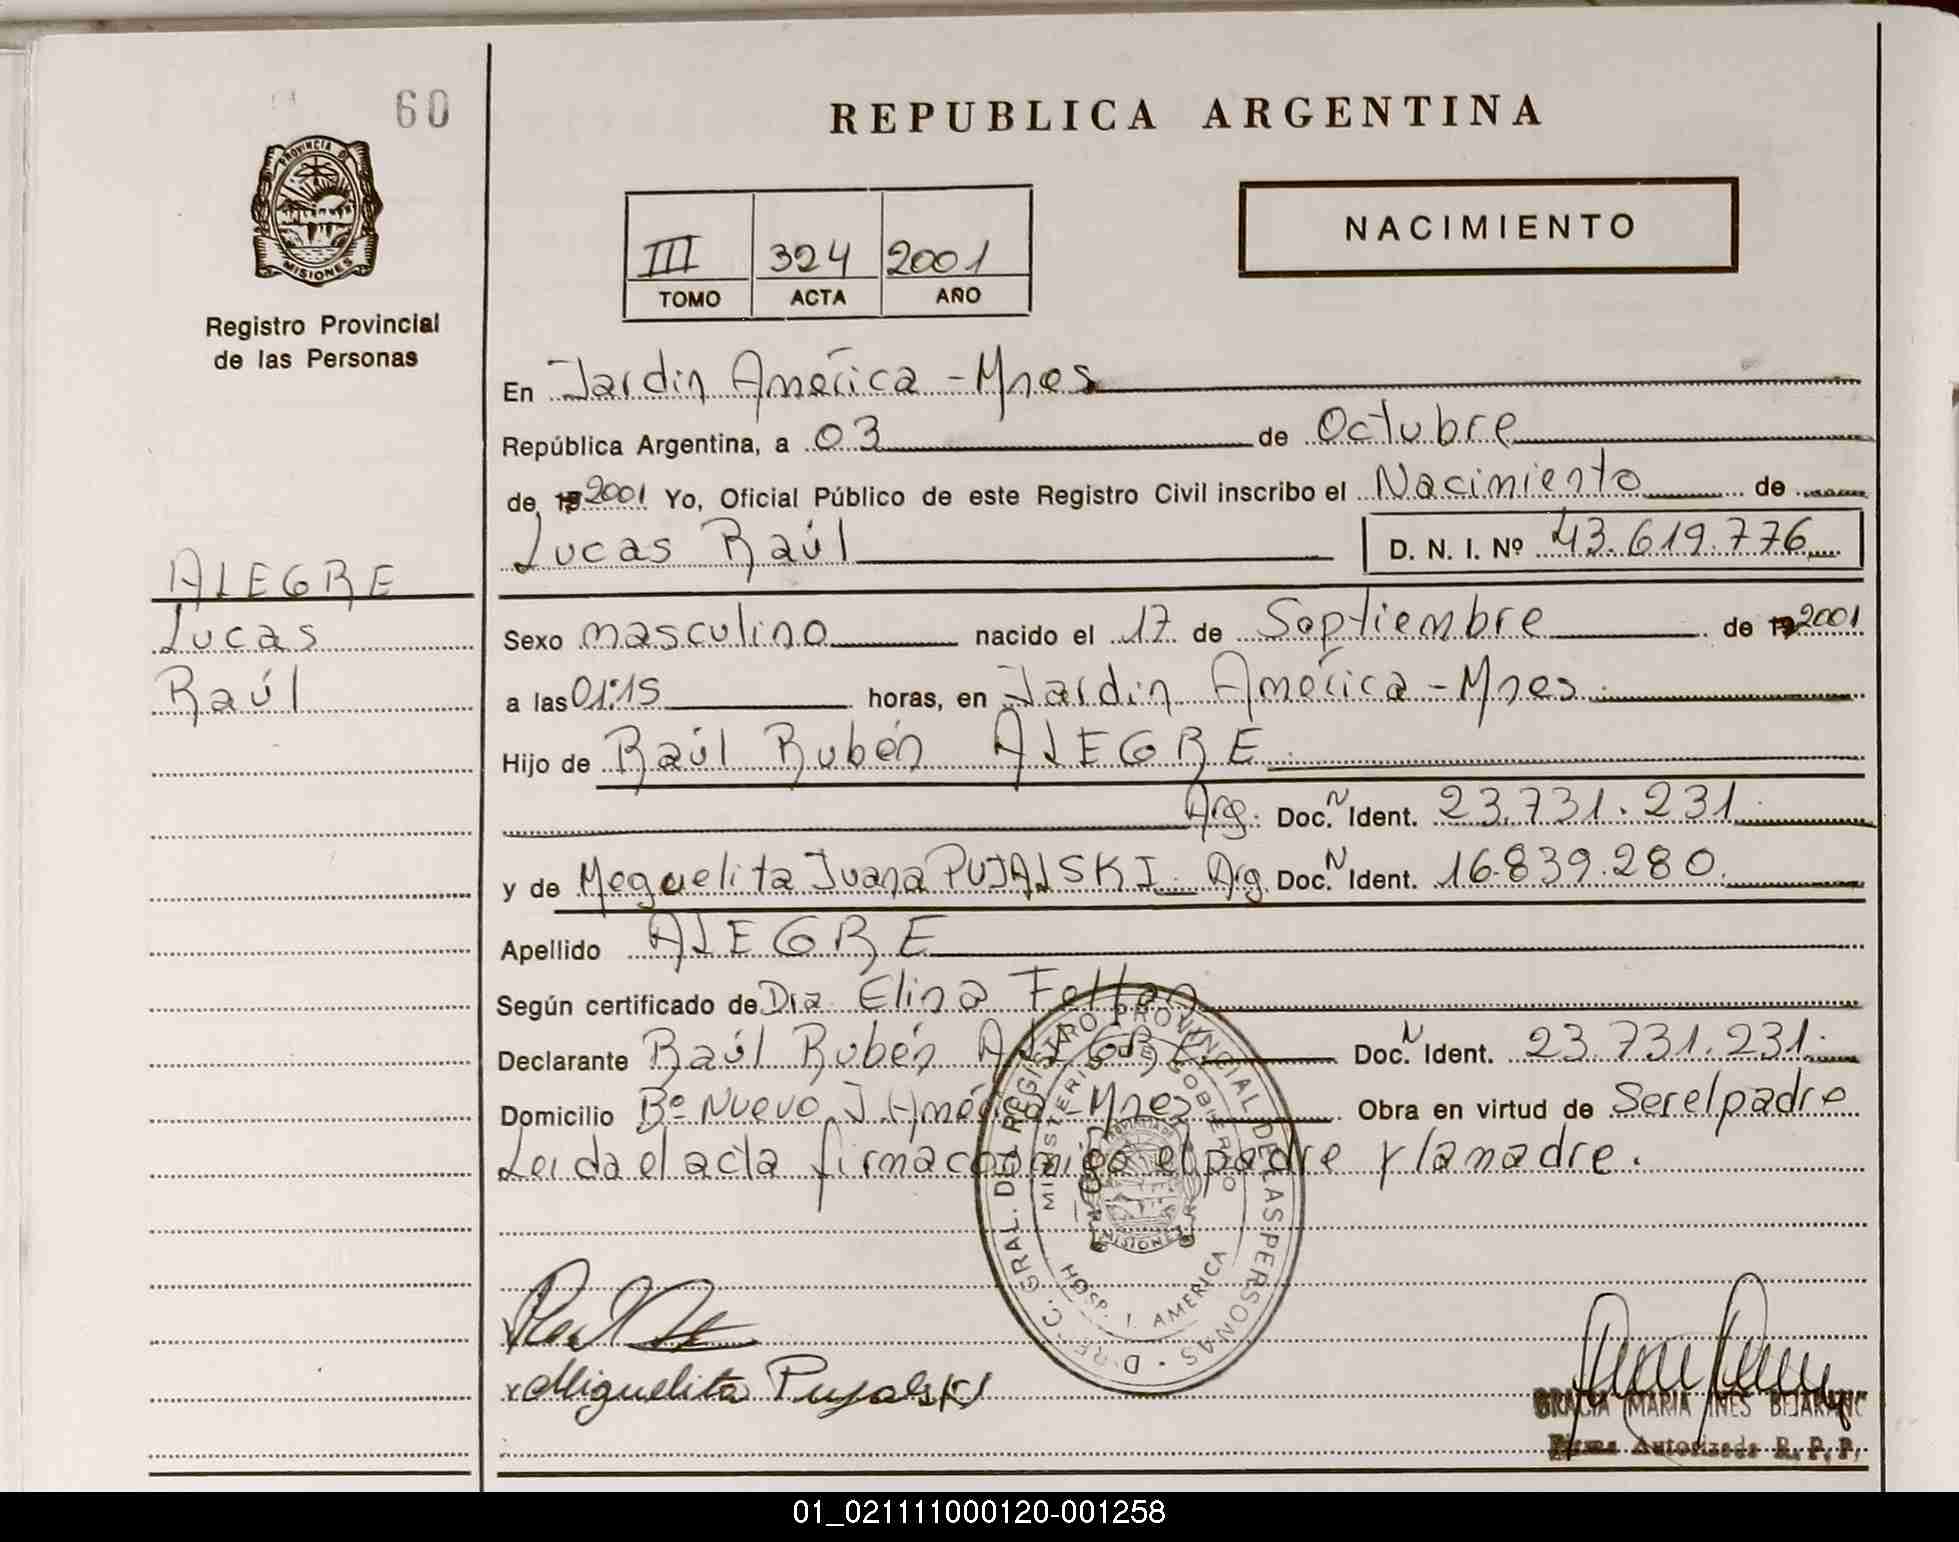 60
REPUBLICA ARGENTINA
PROVINCIA DE
MISIONES
Registro Provincial
de las Personas
NACIMIENTO
III 324 2001
TOMO ACTA AÑO
En Jardin América - Mnes
República Argentina, a 03 de Octubre
de 19 2001 Yo, Oficial Público de este Registro Civil inscribo el Nacimiento de
Lucas Raúl D. N. I. Nº 43.619.776
ALEGRE
Lucas
Raúl
Sexo masculino nacido el 17 de Septiembre de 19 2001
a las 01:15 horas, en Jardin América - Mnes.
Hijo de Raúl Rubén ALEGRE.
Arg. Doc. N Ident. 23.731.231.
y de Meguelita Juana PUJALSKI. Arg. Doc. N Ident. 16.839.280.
Apellido ALEGRE
Según certificado de Dra. Elina
Declarante Raúl Rubén ALEGRE Doc. N Ident. 23.731.231.
Domicilio Bº Nuevo J. América - Mnes Obra en virtud de Ser el padre
Leida el acta firma conmigo el padre y la madre.
DIREC. GRAL. DEL REGISTRO PROVINCIAL DE LAS PERSONAS
MINISTERIO DE GOBIERNO
MISIONES
HOSP. J. AMERICA
Miguelita Pujalski
GRACIA MARIA INES BEJARANO
Firma Autorizada R. P. P.
01_021111000120-001258